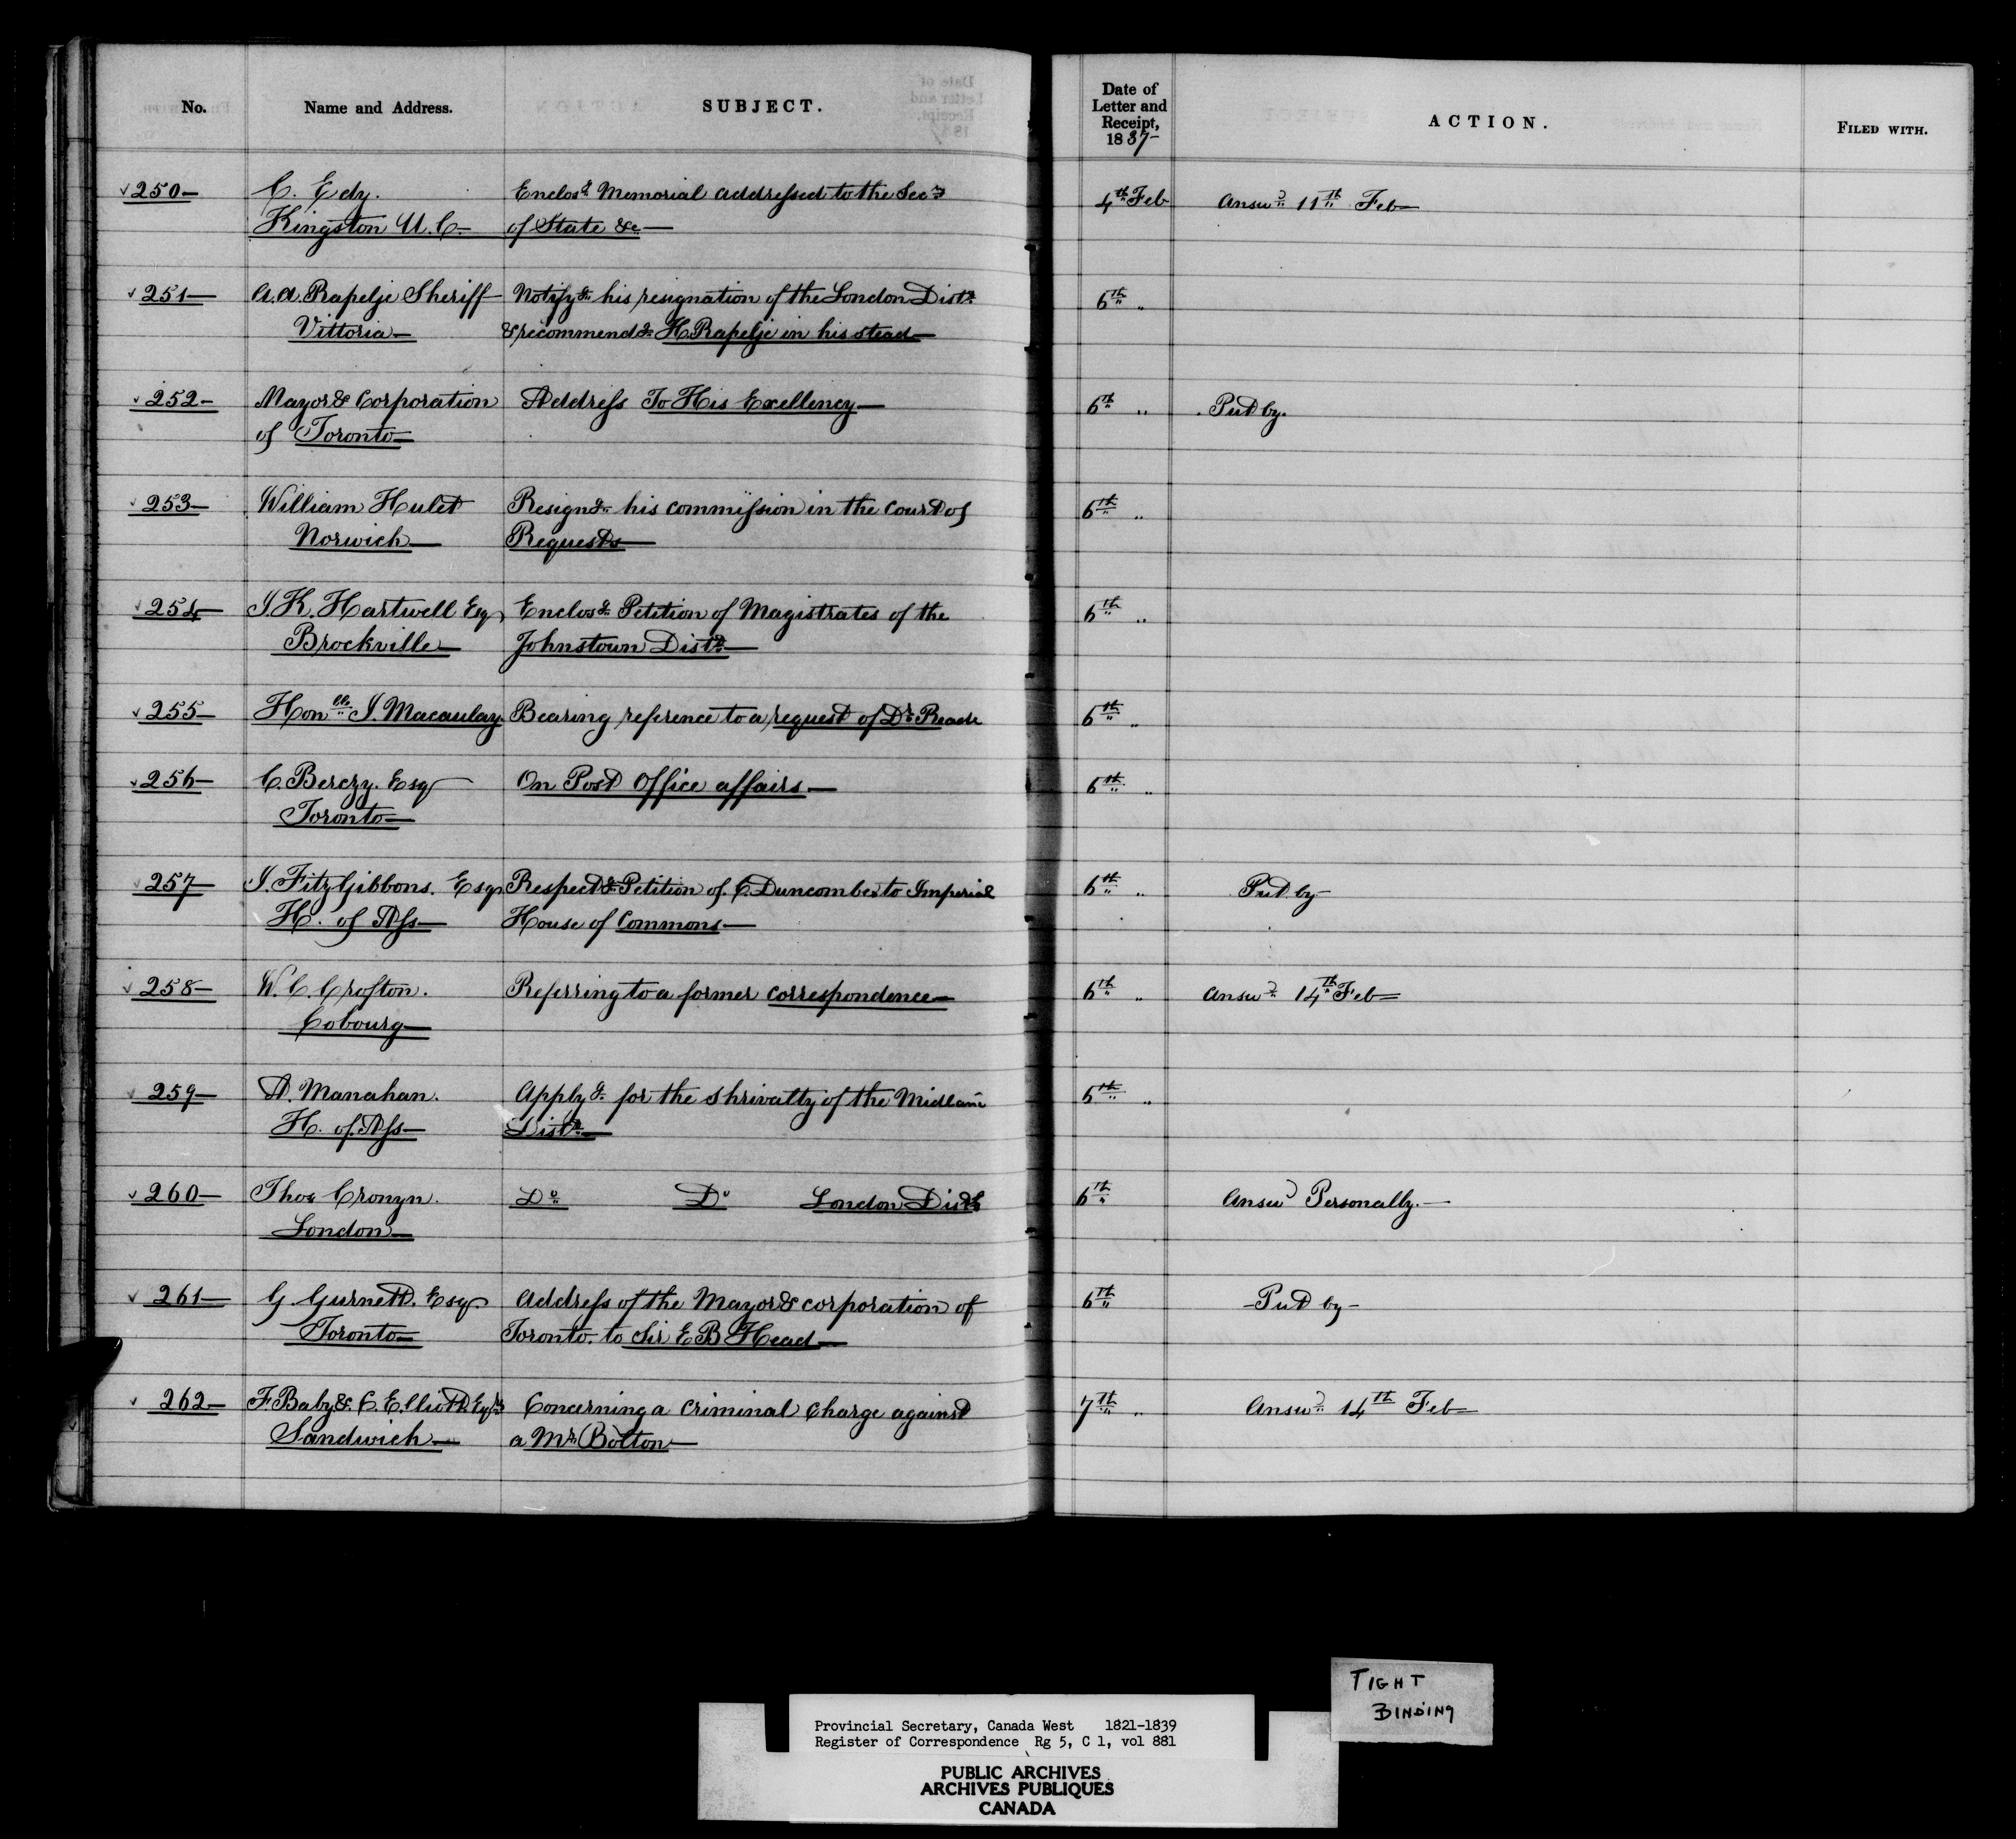 No. Name and Address. SUBJECT. Date of Letter and Receipt, 1837- ACTION. FILED WITH.
250- C. Edy. Enclosg. Memorial addressed to the Secy 4th Feb Answd 11th Feb-
Kingston U.C- of State &c-
251- A.A. Rapelje Sheriff- Notifyg. his resignation of the London Distr. 6th "
Vittoria- & recommendg. H. Rapelje in his stead-
252- Mayor & Corporation Address To His Excellency- 6th " Put by.
of Toronto-
253- William Hulet Resigng. his commission in the Court of 6th "
Norwich- Requests-
254- J.K. Hartwell Esq Enclosg. Petition of Magistrates of the 6th "
Brockville- Johnstown Distr.-
255- Honble J. Macaulay Bearing reference to a request of Dr. Reade 6th "
256- C. Berczy. Esq On Post Office affairs- 6th "
Toronto-
257- J. FitzGibbons. Esqr Respectg. Petition of C. Duncombe to Imperial 6th " Put by-
H. of Ass- House of Commons-
258- W.C. Crofton. Referring to a former correspondence- 6th " Answd 14th Feb-
Cobourg-
259- A. Manahan. Applyg. for the Shrivalty of the Midland 6th "
H. of Ass- Distr.-
260- Thos Cronyn. Do Do London Distr. 6th Answd Personally.-
London-
261- G. Gurnett. Esq Address of the Mayor & corporation of 6th -Put by-
Toronto- Toronto. to Sir E B Head-
262- F. Baby & C. Elliott. Esqrs Concerning a Criminal Charge against 7th " Answd 14th Feb-
Sandwich- a Mr. Bolton-
TIGHT
BINDING
Provincial Secretary, Canada West 1821-1839
Register of Correspondence Rg 5, C 1, vol 881
PUBLIC ARCHIVES
ARCHIVES PUBLIQUES
CANADA